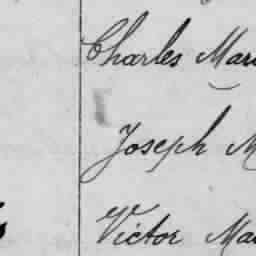 Charles Mar
Joseph M
Victor Ma